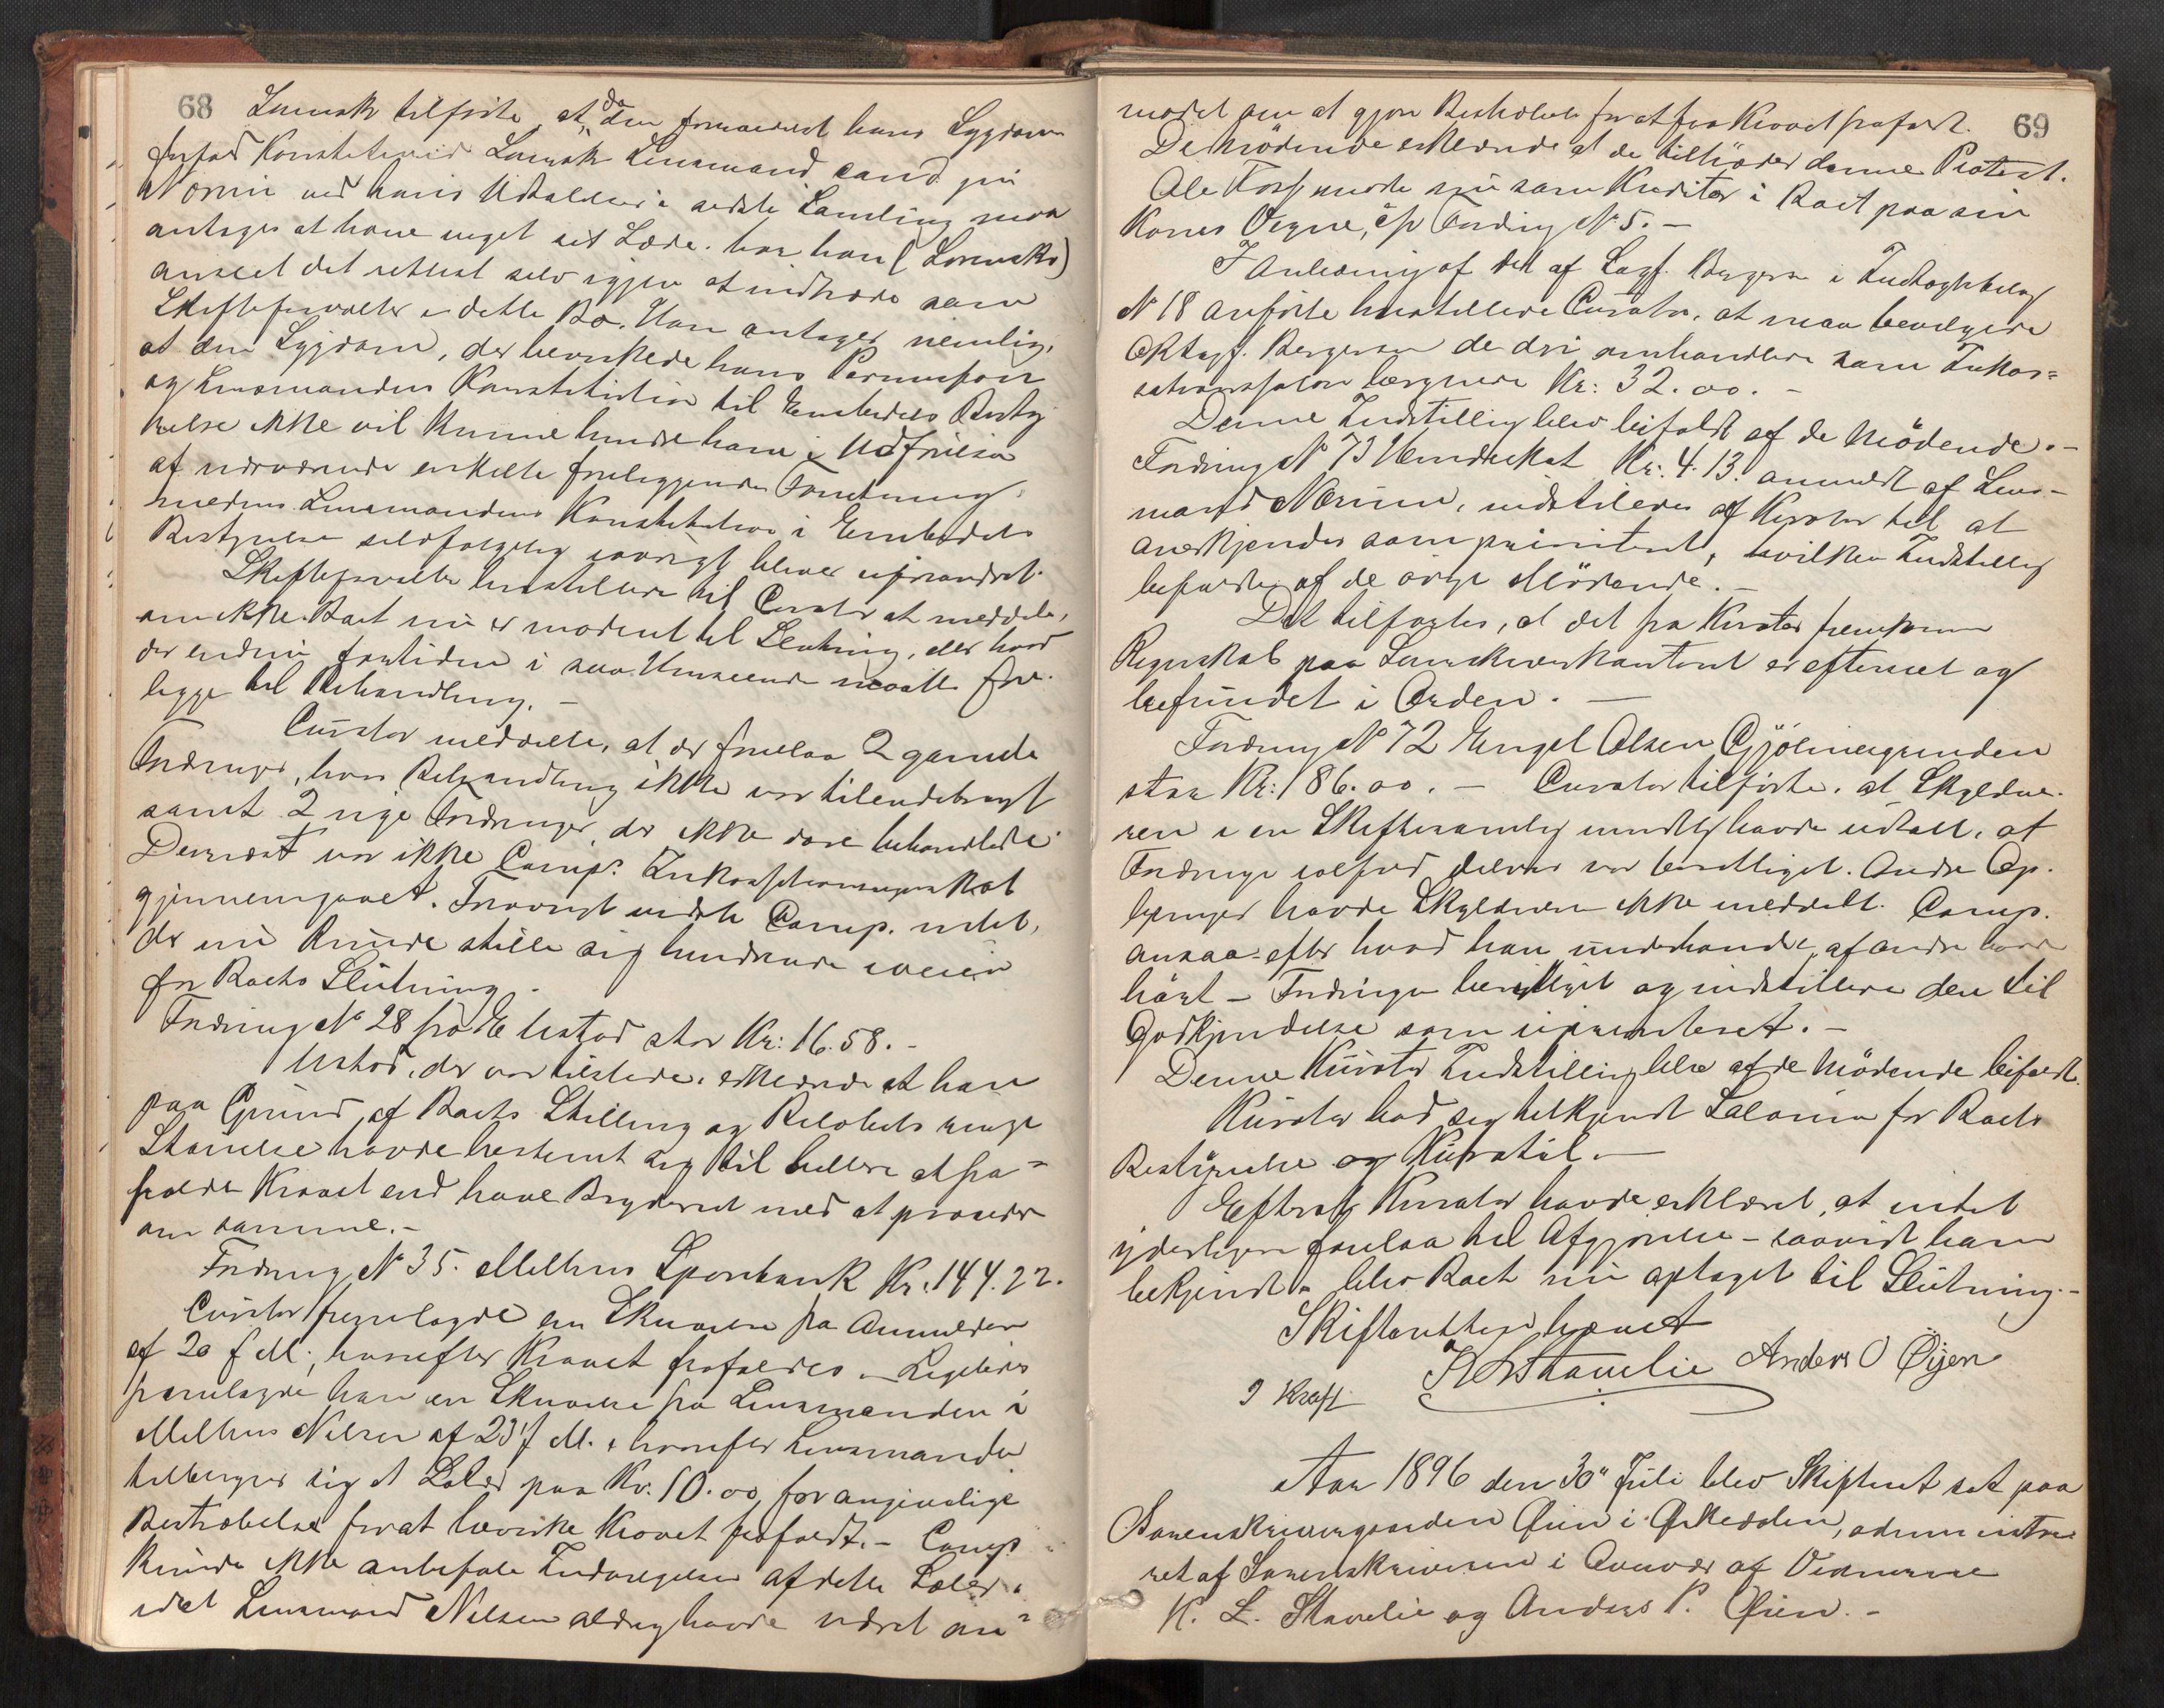 68
Lensmk tilførte, at da den formodet hans Sygdom
forfad Konstitueret Lensmand cand. jur.
Nørui ved hans Udtalelser i sidste Samling maa
antages at have meget sit Læde. har han (Lorensks)
anseet det rettest selv igjen at indtræde som
Skifteforvalter i dette Bo. Han antager nemlig,
at den Sygdom, der bevirkede hans Permission
og Lensmandens Konstitution til Embedets Besty
relse ikke vil kunne hindre ham i Udførelsen
af nærværende enkelte foreliggende Forretning,
medens Lensmandens Konstitution i Embedets
Bestyrelse selvfølgelig iøvrigt bliver uforandret.
Skifteforvalter henstillede til Curator at meddele,
om ikke Boet nu er modent til Slutning, eller hvad
der endnu fortiden i saa Henseende maatte fore-
ligge til Behandling. –
Curator meddelte, at der forelaa 2 gamle
Fordringer, hvis Behandling ikke var tilendebragt
samt 2 nye Fordringer, der ikke vare behandlede.
Dernæst var ikke Comp. Inkassationsregnskab
gjennemgaaet. Forøvrigt vidste Comp. intet,
der nu kunde stille sig hindrende iveien
for Boets Slutning. –
Fordring No 28 fra E Ustad stor Kr: 16.58. –
Ustad, der var tilstede, erklærede at han
paa Grund af Boets Stilling og Beløbets ringe
Størrelse havde bestemt sig til hellere at fra=
falde Kravet end have Bryderiet med at procedere
om samme. –
Fordring No 35. Melhus Sparebank Kr. 144.22.
Curator fremlagde en Skrivelse fra Anmelderen
af 20 f. M., hvorefter Kravet frafaldes. – Ligeledes
fremlagde han en Skrivelse fra Lensmanden i
Melhus Nilsen af 23 f. M., hvorefter Lensmanden
tilberegner sig et Salær paa Kr. 10.00 for angivelige
Bestræbelser for at bevirke Kravet frafaldt. – Comp.
kunde ikke anbefale Indvilgelsen af dette Salær,
idet Lensmand Nilsen aldrig havde været an=
69
modet om at gjøre Bestræbelser for at faa Kravet frafaldt.
De mødende erklærede at de tiltræder denne Protest.
Ole Foss mødte nu som Kreditor i Boet paa sin
Kones Vegne, cfr Fordring No 5. –
I Anledning af det af Sagf. Bergersen i Indtægtsbilag
No 18 anførte henstillede Curator, at man bevilgede
O.R.Sagf. Bergersen de deri omhandlede som Inkas=
sationssalær beregnede Kr: 32.00. –
Denne Indstilling blev bifaldt af de Mödende. –
Fordring No 73 Herredskat Kr. 4.13. anmeldt af Lens-
mand Nærum, indstilledes af Kurator til at
anerkjendes som prioriteret, hvilken Indstilling
bifaldtes af de øvrige Mödende. –
Det tilførtes, at det fra Kurator fremkomne
Regnskab paa Sorenskriverkontoret er efterseet og
befundet i Orden. –
Fordring No 72 Engel Olsen Gjölmesgrunden
stor Kr: 186.00. – Curator tilførte, at Skyldne-
ren i en Skiftesamling mundtlig havde udtalt, at
Fordringen ialfald delvis var berettiget. Andre Op-
lysninger havde Skyldneren ikke meddelt. Comp.
ansaa – efter hvad han underhaanden af andre havde
hört – Fordringen berettiget og indstillede den til
Godkjendelse som uprioriteret. –
Denne Kurators Indstilling blev af de Mödende bifaldt.
Kurator bad sig tilkjendt Salærium for Boets
Bestyrelse og Kuratel. –
Efterat Kurator havde erklæret, at intet
yderligere forelaa til Afgjörelse – saavidt ham
bekjendt – blev Boet nu optaget til Slutning. –
Skifteretten hævet
K L Stavelie Anders O Öyen
I Kraft
Aar 1896 den 30" Juli blev Skifteret sat paa
Sorenskrivergaarden Øien i Orkedalen, administre=
ret af Sorenskriveren i Overvær af Vidnerne
K. L. Stavelie og Anders P. Øien. –